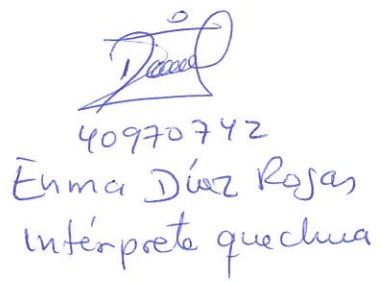 40970742
Enma Díaz Rojas
Intérprete quechua